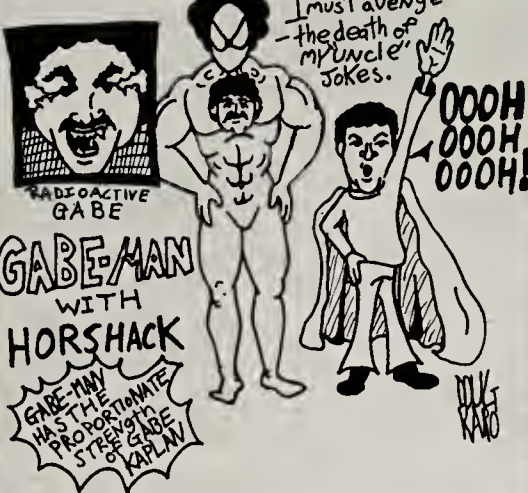 I must avenge
the death of
my "uncle"
Jokes.
OOOH
OOOH
OOOH!
RADIOACTIVE
GABE
GABE-MAN
WITH
HORSHACK
GABE-MAN
HAS THE
PROPORTIONATE
STRENGTH
OF GABE
KAPLAN